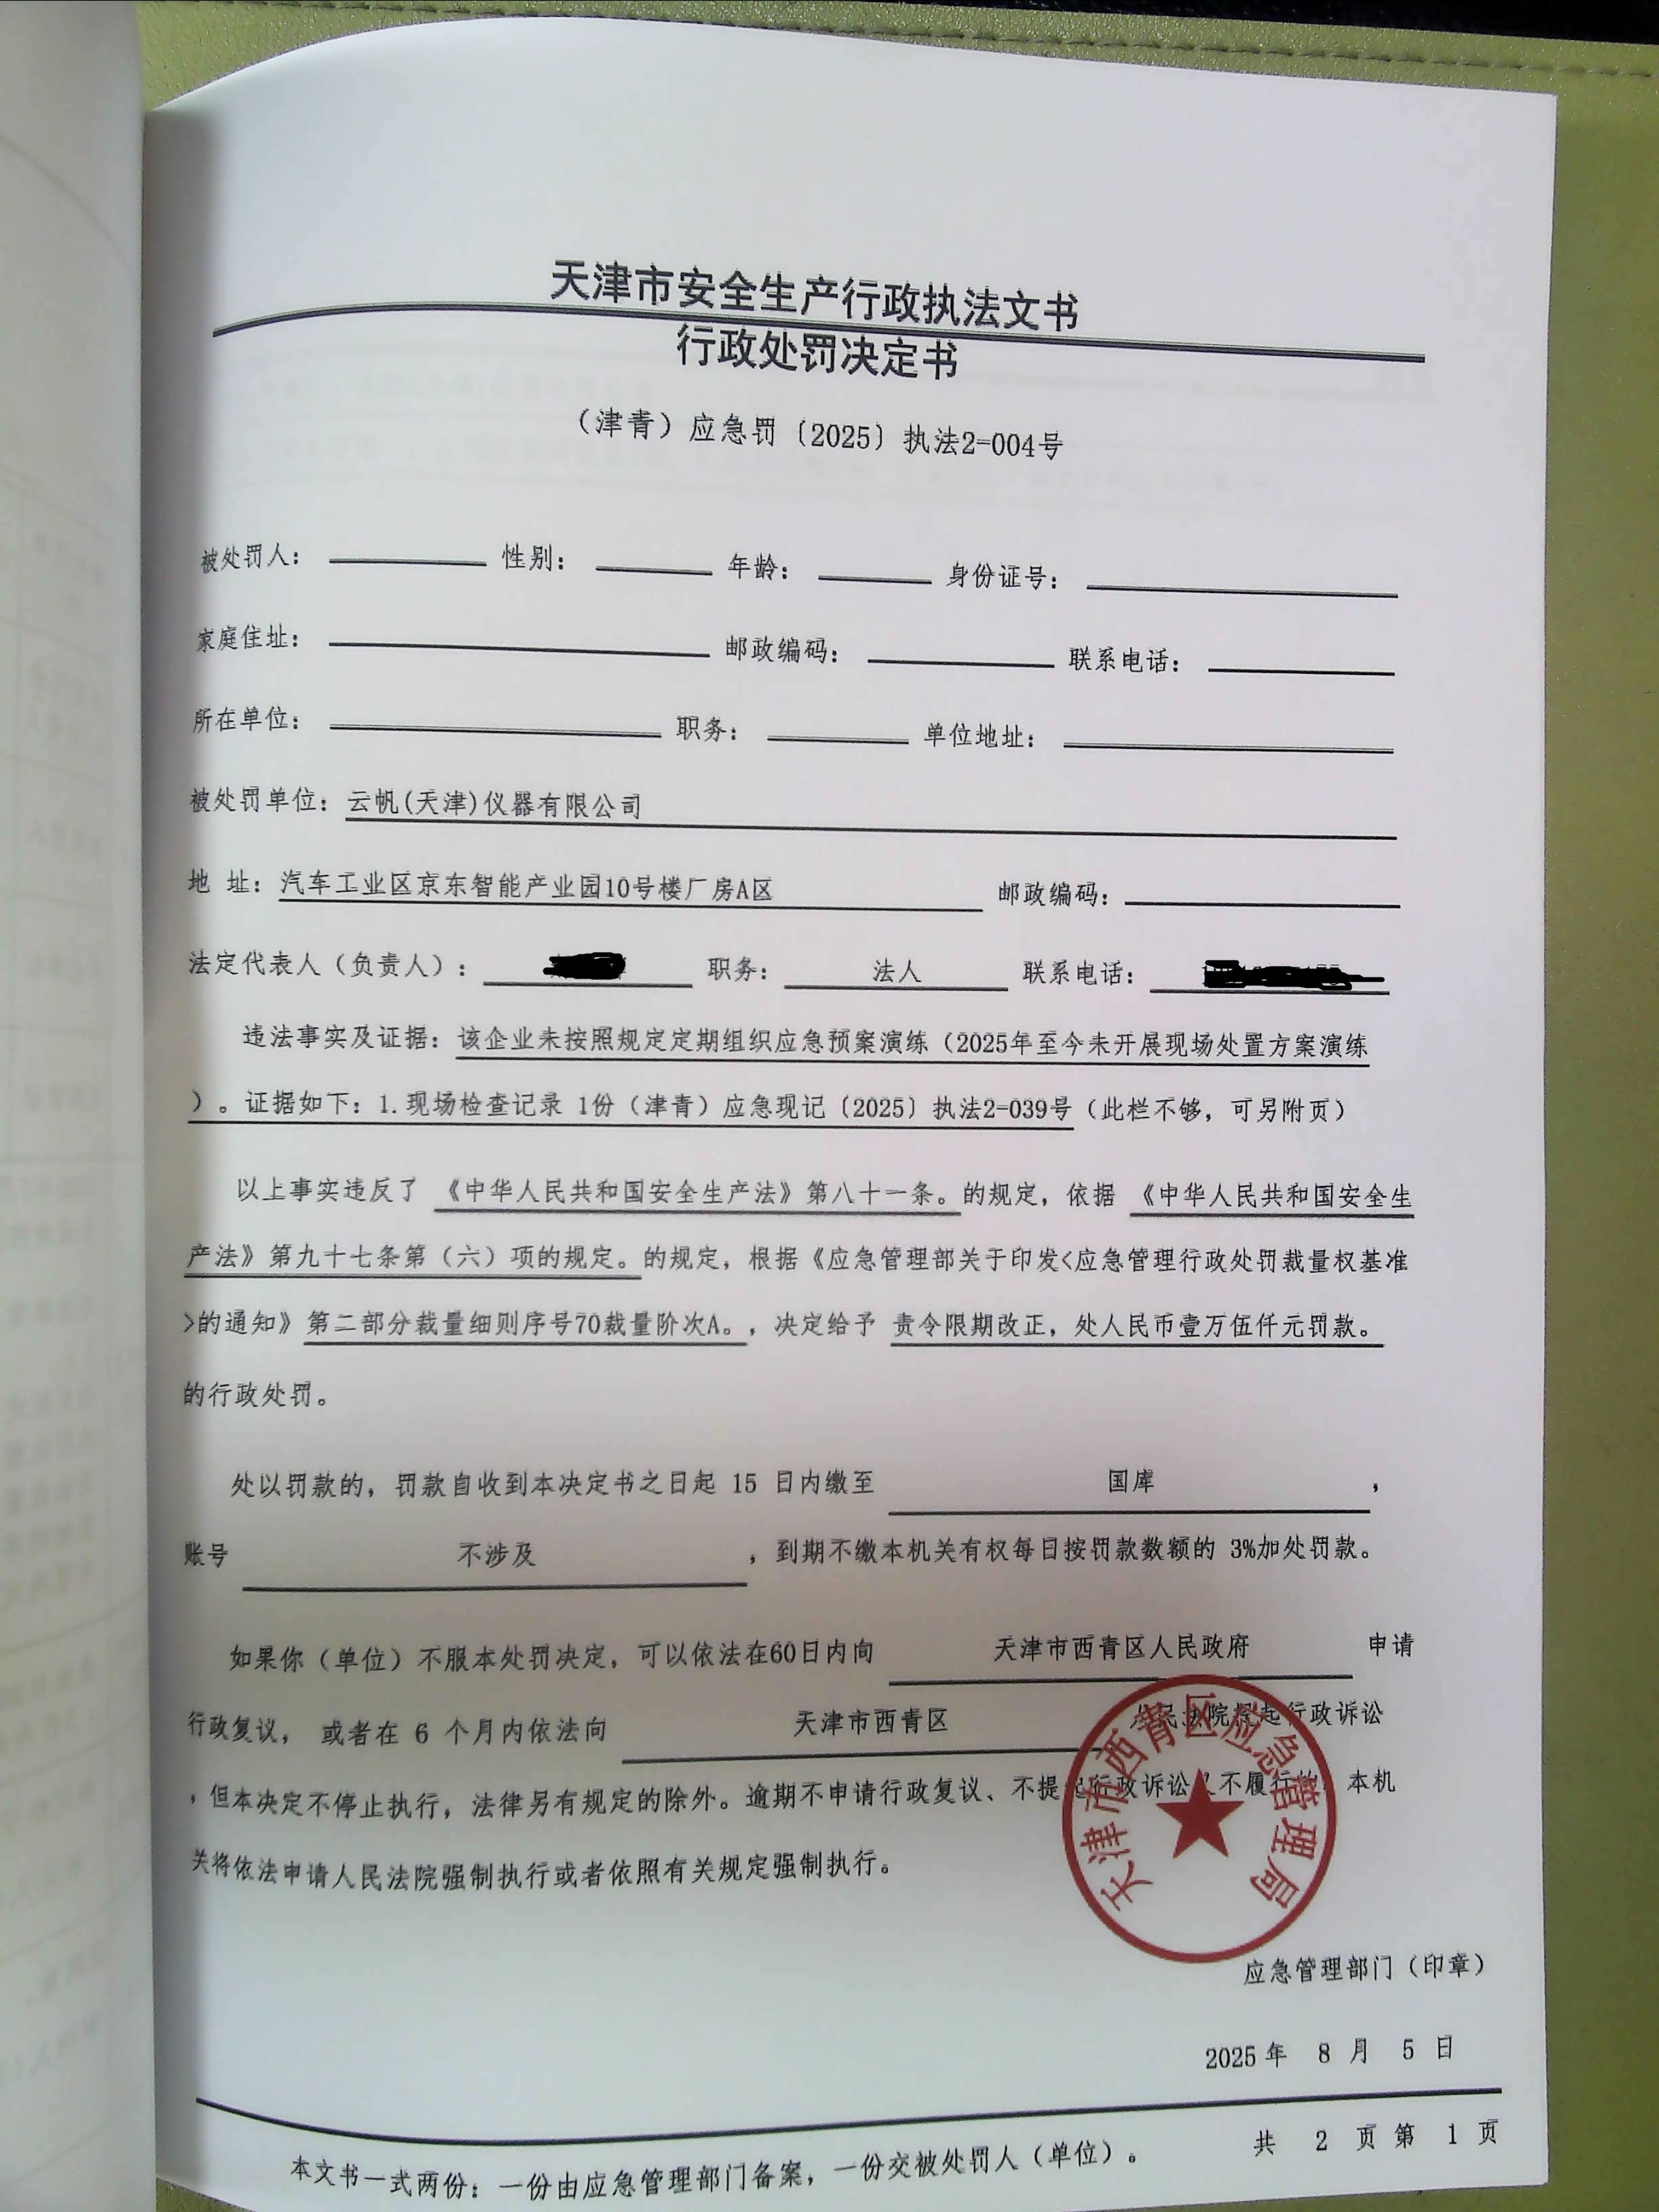 天津市安全生产行政执法文书
行政处罚决定书
（津青）应急罚〔2025〕执法2-004号
被处罚人： 性别： 年龄： 身份证号：
家庭住址： 邮政编码： 联系电话：
所在单位： 职务： 单位地址：
被处罚单位：云帆(天津)仪器有限公司
地 址：汽车工业区京东智能产业园10号楼厂房A区 邮政编码：
法定代表人（负责人）： 职务： 法人 联系电话：
违法事实及证据：该企业未按照规定定期组织应急预案演练（2025年至今未开展现场处置方案演练
）。证据如下：1.现场检查记录 1份（津青）应急现记〔2025〕执法2-039号（此栏不够，可另附页）
以上事实违反了 《中华人民共和国安全生产法》第八十一条。的规定，依据 《中华人民共和国安全生
产法》第九十七条第（六）项的规定。的规定，根据《应急管理部关于印发<应急管理行政处罚裁量权基准
>的通知》第二部分裁量细则序号70裁量阶次A。，决定给予 责令限期改正，处人民币壹万伍仟元罚款。
的行政处罚。
处以罚款的，罚款自收到本决定书之日起 15 日内缴至 国库 ，
账号 不涉及 ，到期不缴本机关有权每日按罚款数额的 3%加处罚款。
如果你（单位）不服本处罚决定，可以依法在60日内向 天津市西青区人民政府 申请
行政复议， 或者在 6 个月内依法向 天津市西青区 人民法院提起行政诉讼
，但本决定不停止执行，法律另有规定的除外。逾期不申请行政复议、不提起行政诉讼又不履行的，本机
关将依法申请人民法院强制执行或者依照有关规定强制执行。
天津市西青区应急管理局
应急管理部门（印章）
2025年 8 月 5 日
共 2 页 第 1 页
本文书一式两份：一份由应急管理部门备案，一份交被处罚人（单位）。